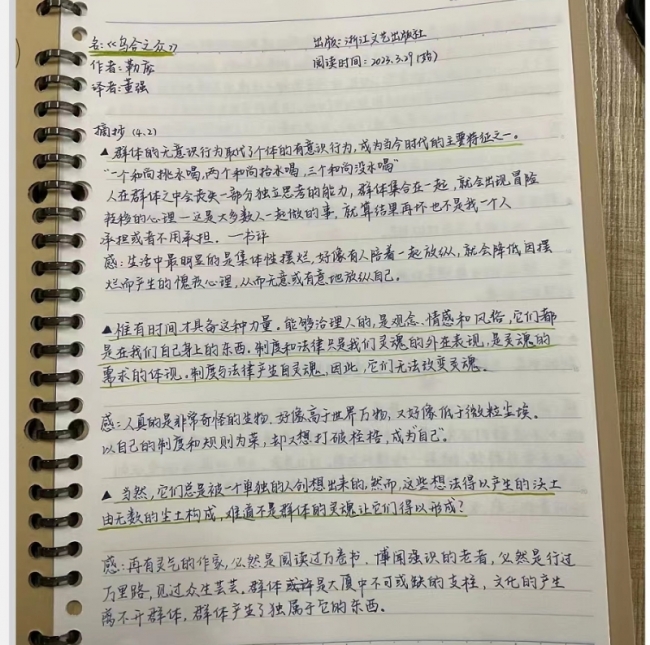 名:《乌合之众》 出版:浙江文艺出版社
作者:勒庞 阅读时间:2023.3.29(始)
译者:董强
摘抄(4.2)
▲ 群体的无意识行为取代了个体的有意识行为,成为当今时代的主要特征之一。
"一个和尚挑水喝,两个和尚抬水喝,三个和尚没水喝"
人在群体之中会丧失一部分独立思考的能力,群体集合在一起,就会出现冒险
转移的心理—这是大多数人一起做的事,就算结果再坏也不是我一个人
承担或者不用承担。—书评
感:生活中最明显的是集体性摆烂,好像有人陪着一起放纵,就会降低因摆
烂而产生的愧疚心理,从而无意或有意地放纵自己。
▲ 惟有时间才具备这种力量。能够治理人的,是观念、情感和风俗,它们都
是在我们自己身上的东西。制度和法律只是我们灵魂的外在表现,是灵魂的
需求的体现。制度与法律产生自灵魂,因此,它们无法改变灵魂。
感:人真的是非常奇怪的生物,好像高于世界万物,又好像低于微粒尘埃。
以自己的制度和规则为荣,却又想打破桎梏,成为"自己"。
▲ 当然,它们总是被一个单独的人创想出来的,然而,这些想法得以产生的沃土
由无数的尘土构成,难道不是群体的灵魂让它们得以形成?
感:再有灵气的作家,必然是阅读过万卷书,博闻强识的老者,必然是行过
万里路,见过众生芸芸。群体或许是大厦中不可或缺的支柱,文化的产生
离不开群体,群体产生了独属于它的东西。